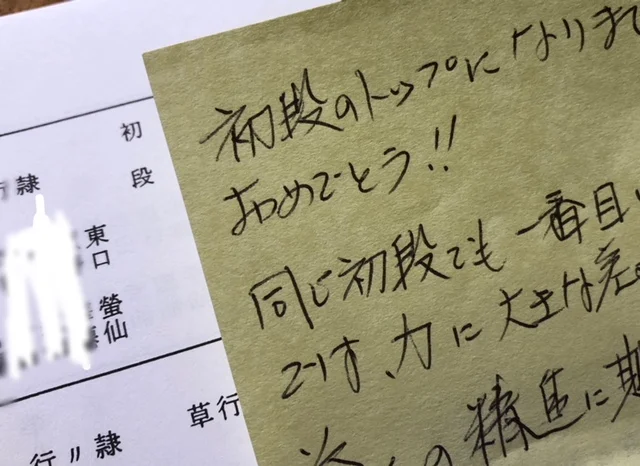 初段
隷
東口
螢仙
草行
行〃隷
初段のトップになりま
おめでとう!!
同じ初段でも一番目
では、力に大きな差
の精進に期